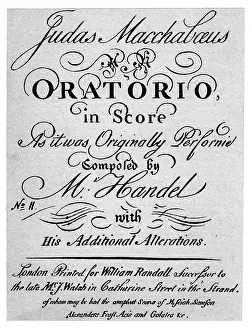 Judas Macchabæus
AN
ORATORIO,
in Score
As it was Originally Perform'd
Composed by
Mr. Handel
No. II.
with
His Additional Alterations.
London Printed for William Randall Successor to
the late Mr. J. Walsh in Catharine Street in the Strand.
of whom may be had the compleat Scores of Messiah, Samson
Alexanders Feast, Acis and Galatea &c.